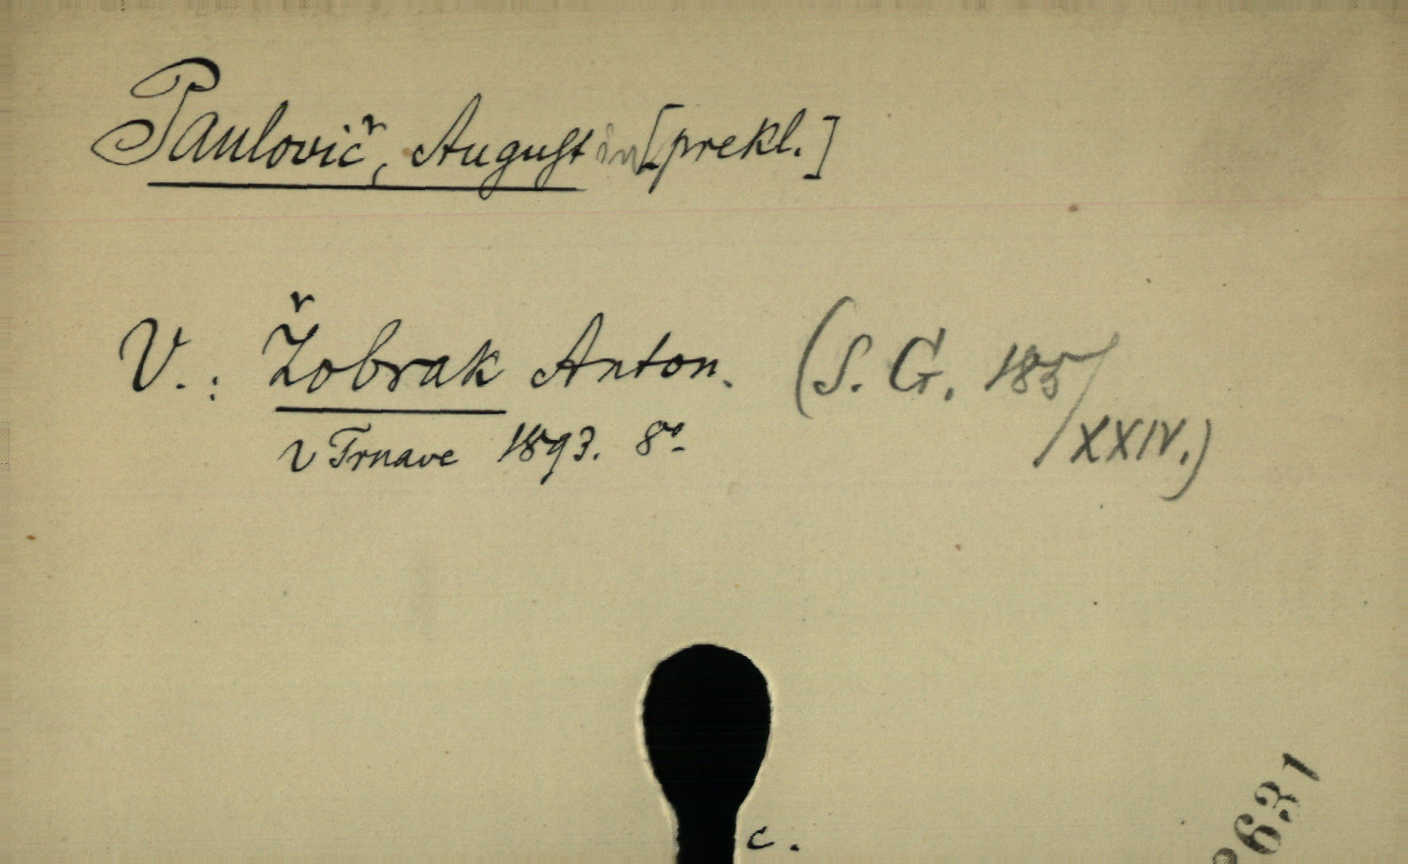 Paulovič, Augustin [prekl.]
V.: Žobrak Anton. (S. G. 185/XXIV.)
v Trnave 1893. 8°
c.